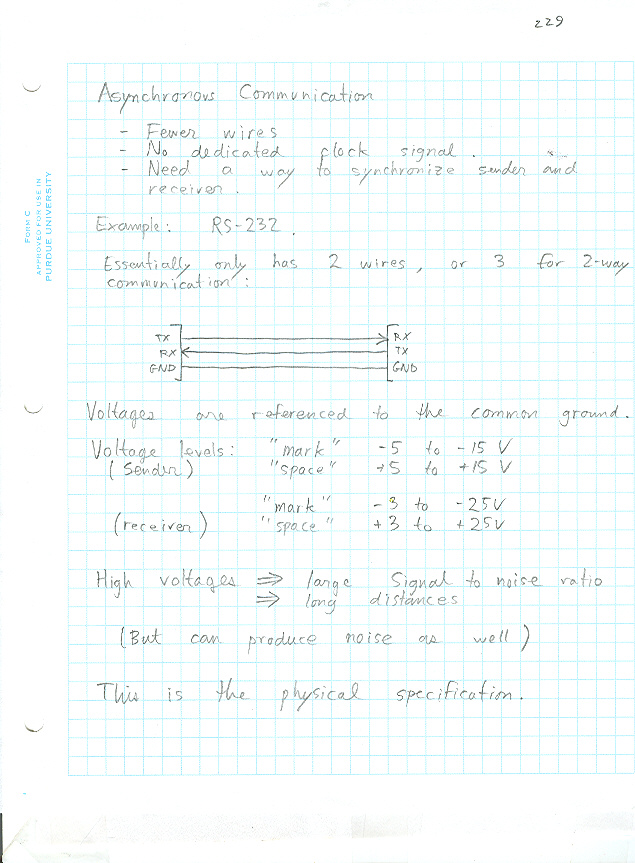 229
FORM C
APPROVED FOR USE IN
PURDUE UNIVERSITY
Asynchronous Communication
- Fewer wires
- No dedicated clock signal.
- Need a way to synchronize sender and
receiver.
Example: RS-232.
Essentially only has 2 wires, or 3 for 2-way
communication:
TX RX
RX TX
GND GND
Voltages are referenced to the common ground.
Voltage levels: "mark" -5 to -15 V
(Sender) "space" +5 to +15 V
"mark" -3 to -25V
(receiver) "space" +3 to +25V
High voltages ⇒ large Signal to noise ratio
⇒ long distances
(But can produce noise as well)
This is the physical specification.